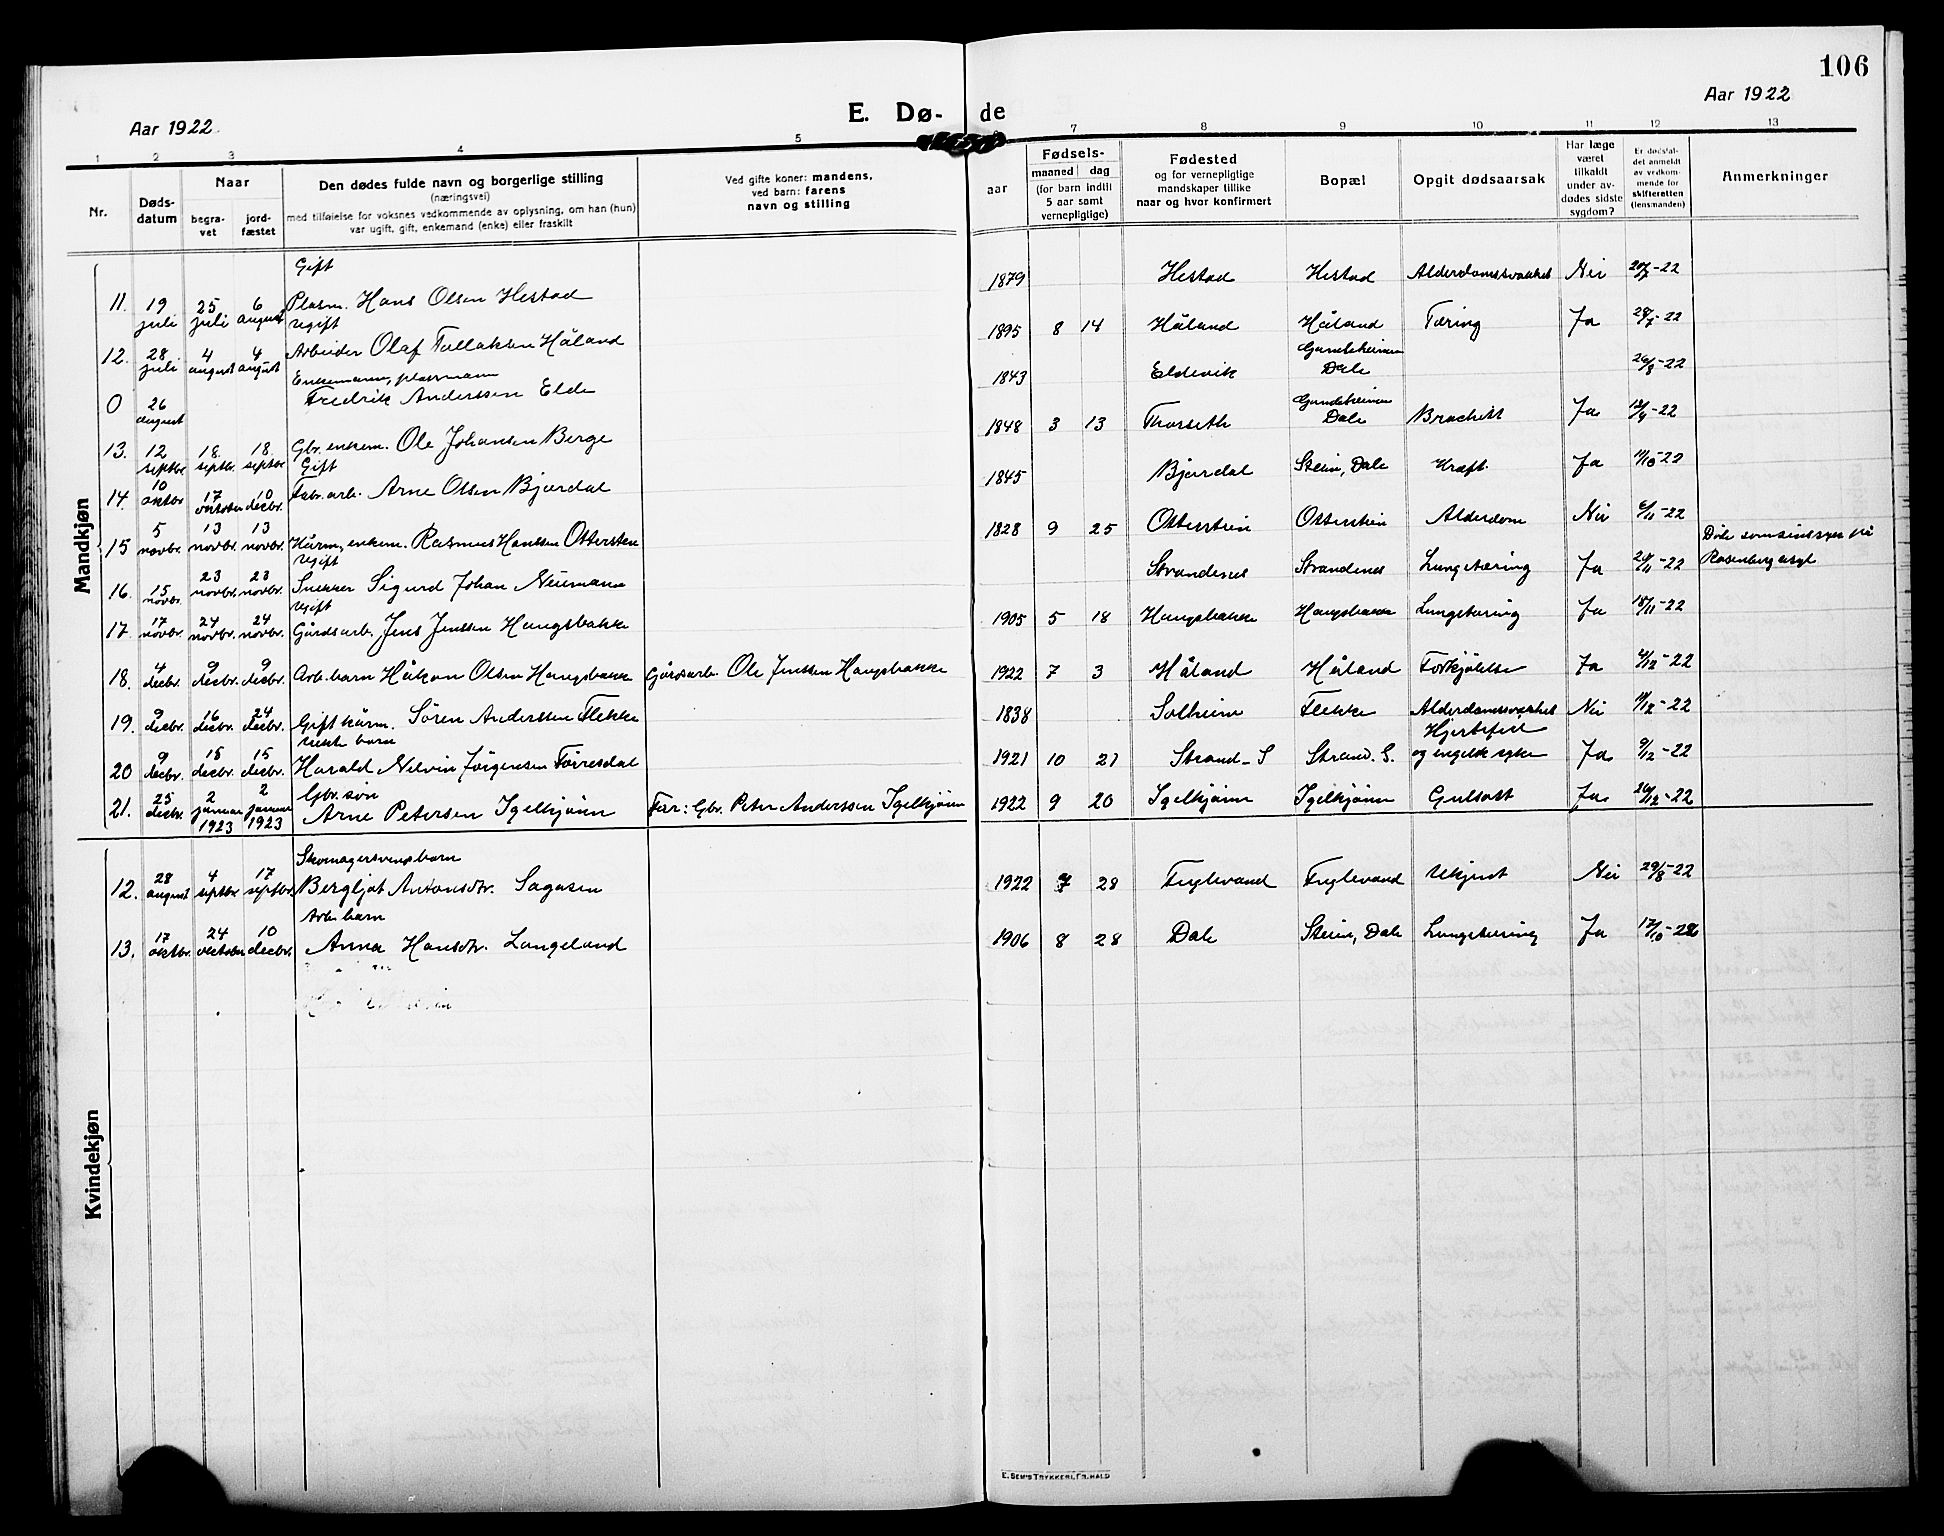 106
Aar 1922
E. Dø-
de
Aar 1922
1 2 3 4 5 7 8 9 10 11 12 13
Nr.
Døds-
datum
Naar
begra-
vet
jord-
fæstet
Den dødes fulde navn og borgerlige stilling
(næringsvei)
med tilføielse for voksnes vedkommende av oplysning, om han (hun)
var ugift, gift, enkemand (enke) eller fraskilt
Ved gifte koner: mandens,
ved barn: farens
navn og stilling
aar
Fødsels-
maaned dag
(for barn indtil
5 aar samt
vernepligtige)
Fødested
og for vernepligtige
mandskaper tillike
naar og hvor konfirmert
Bopæl
Opgit dødsaarsak
Har læge
været
tilkaldt
under av-
dødes sidste
sygdom?
Er dødsfal-
det anmeldt
av vedkom-
mende for
skifteretten
(lensmanden)
Anmerkninger
Mandkjøn
Gift
11. 19 juli 25 juli 6 august Plasm. Hans Olsen Hestad 1879 Hestad Hestad Alderdomssvakhet Nei 20/7-22
Ugift
12. 28 juli 4 august 4 august Arbeider Olaf Tollaksen Håland 1895 8 14 Håland Håland Tæring Ja 28/7-22
Enkemann, plassmann
0 26 august Fredrik Anderssen Elde 1843 Eldevik Gamleheimen Dale 26/8-22
13. 12 septbr 18. septbr. 18. septbr Gbr. enkem. Ole Johansen Berge 1848 3 13 Thorseth Gamleheimen Dale Brachitt Ja 12/9-22
Gift
14. 10 oktbr 17 october 10 decbr. Fabr. arb. Arne Olsen Bjerdal 1845 Bjerdal Steien, Dale Kræft. Ja 11/10-22
15 5 novbr. 13 novbr. 13 novbr. Kårm, enkem. Rasmus Hanssen Otterstein 1828 9 25 Otterstein Otterstein Alderdom Nei 6/11-22
Ugift
16. 15 novbr. 23 novbr. 23 novbr. Snekker Sigurd Johan Neumann Strandenes Strandenes Lungetæring Ja 24/11-22 Døde som sindssyk på
Rosenberg asyl
Ugift
17. 17 novbr. 24 novbr. 24 novbr. Gårdsarb. Jens Jenssen Haugsbakke 1905 5 18 Haugsbakke Haugsbakke Lungetæring Ja 18/11-22
18. 4 decbr. 9 decbr. 9 decbr. Arb. barn Håkon Olsen Haugsbakke Gårdsarb. Ole Jenssen Haugsbakke 1922 7 3 Håland Håland Forkjølelse Ja 4/12-22
19. 9 decbr. 16 decbr. 24 decbr. Gift kårm. Søren Anderssen Flekke 1838 Solheim Flekke Alderdomssvakhet Nei 11/12-22
Uekte barn
Hjertefeil
20 9 decbr. 15 decbr. 15 decbr. Harald Nelvin Jørgensen Førresdal 1921 10 21 Strand. S Strand. S. og engelsk syke Ja 9/12-22
Gbr. søn
21. 25 decbr. 2 januar 1923 2 januar 1923 Arne Petersen Igelkjønn Far: Gbr. Peter Anderssen Igelkjønn 1922 9 20 Igelkjønn Igelkjønn Gulsott Ja. 26/12-22
Kvindekjøn
Skomagersvends barn
12. 28 august 4 septbr 17 septbr. Bergljot Antonsdtr. Sagosen 1922 7 28 Fuglevand Fuglevand Ukjent Nei 29/8-22
Arb. barn
13. 17 oktbr. 24 october 10 decbr. Anna Hansdtr. Langeland 1906 8 28 Dale Steien, Dale Lungetæring Ja 17/10-22
E. SEM'S TRYKKERI, FR.HALD